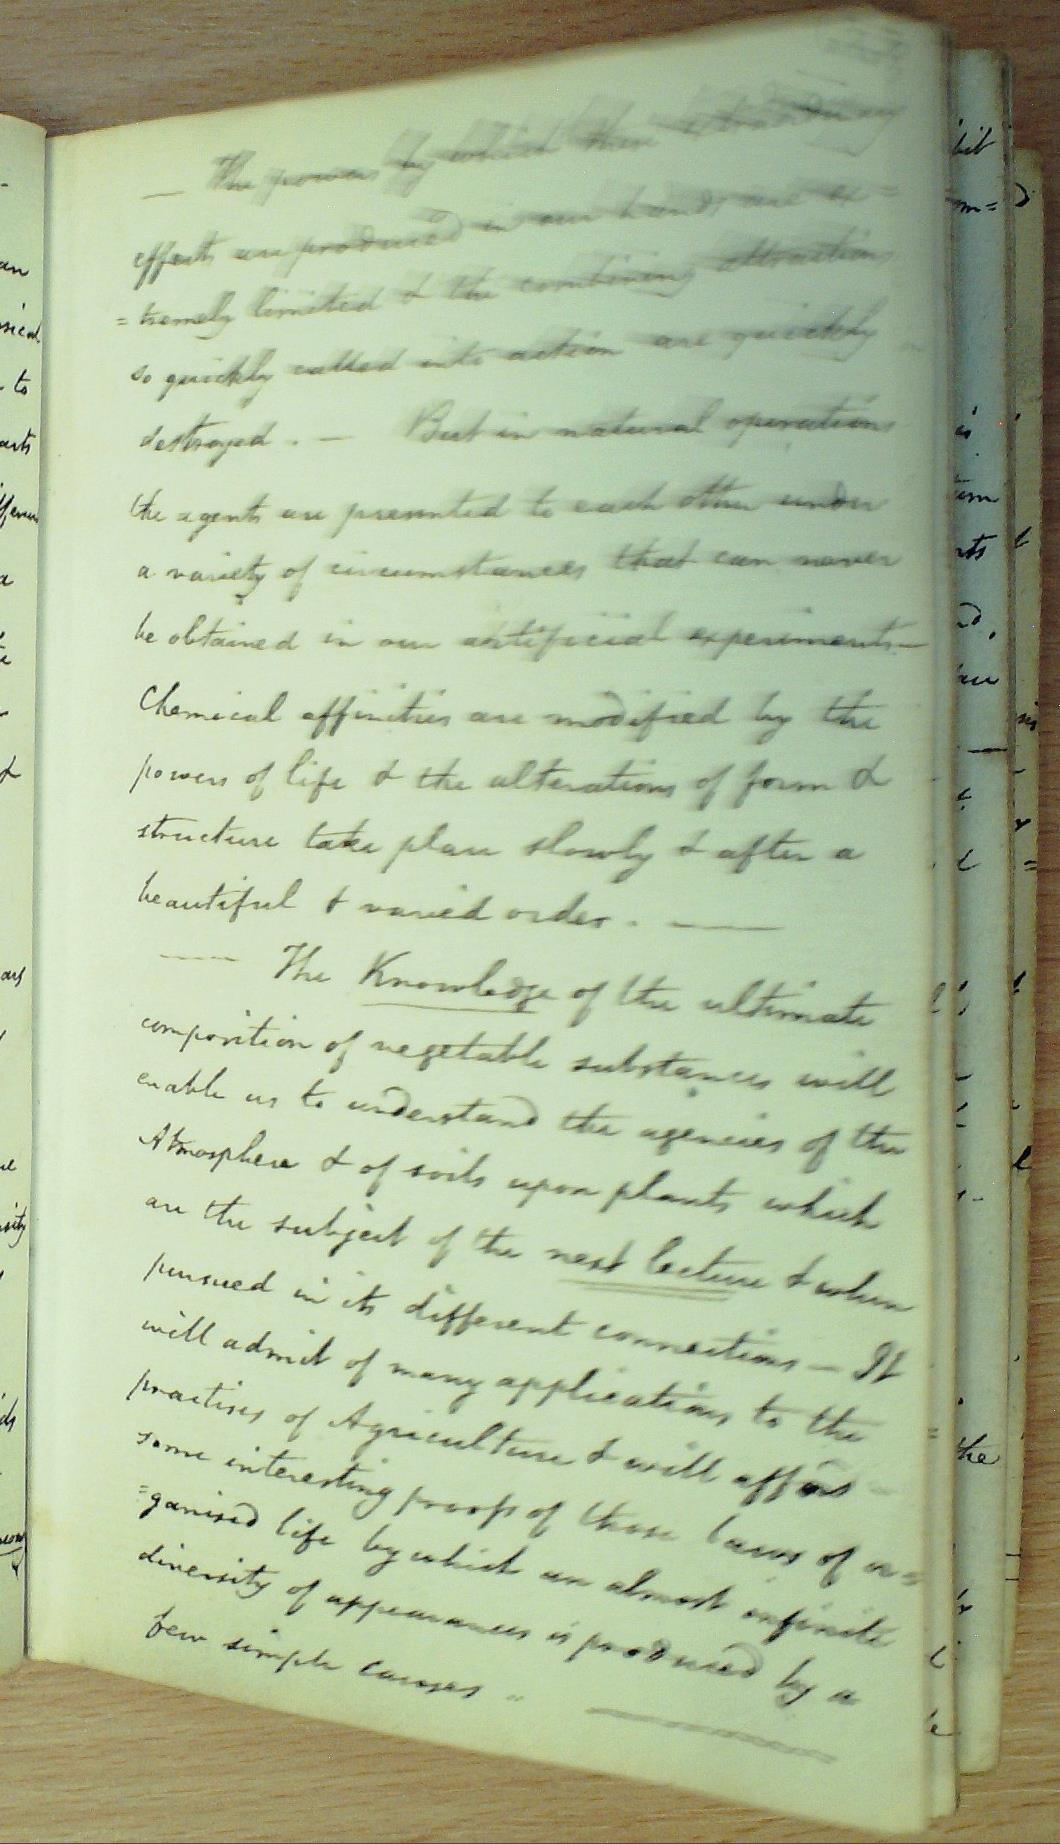 — The powers by which these extraordinary
effects are produced in our hands are ex=
=tremely limited & the combining attractions
so quickly called into action are quickly
destroyed . — But in natural operations
the agents are presented to each other under
a variety of circumstances that can never
be obtained in our artificial experiments —
Chemical affinities are modified by the
powers of life & the alterations of form &
structure take place slowly & after a
beautiful & varied order . —
— The Knowledge of the ultimate
composition of vegetable substances will
enable us to understand the agencies of the
Atmosphere & of soils upon plants which
are the subject of the next lecture & when
pursued in its different connections — It
will admit of many applications to the
practises of Agriculture & will afford
some interesting proofs of those laws of or=
=ganised life by which an almost infinite
diversity of appearances is produced by a
few simple causes "